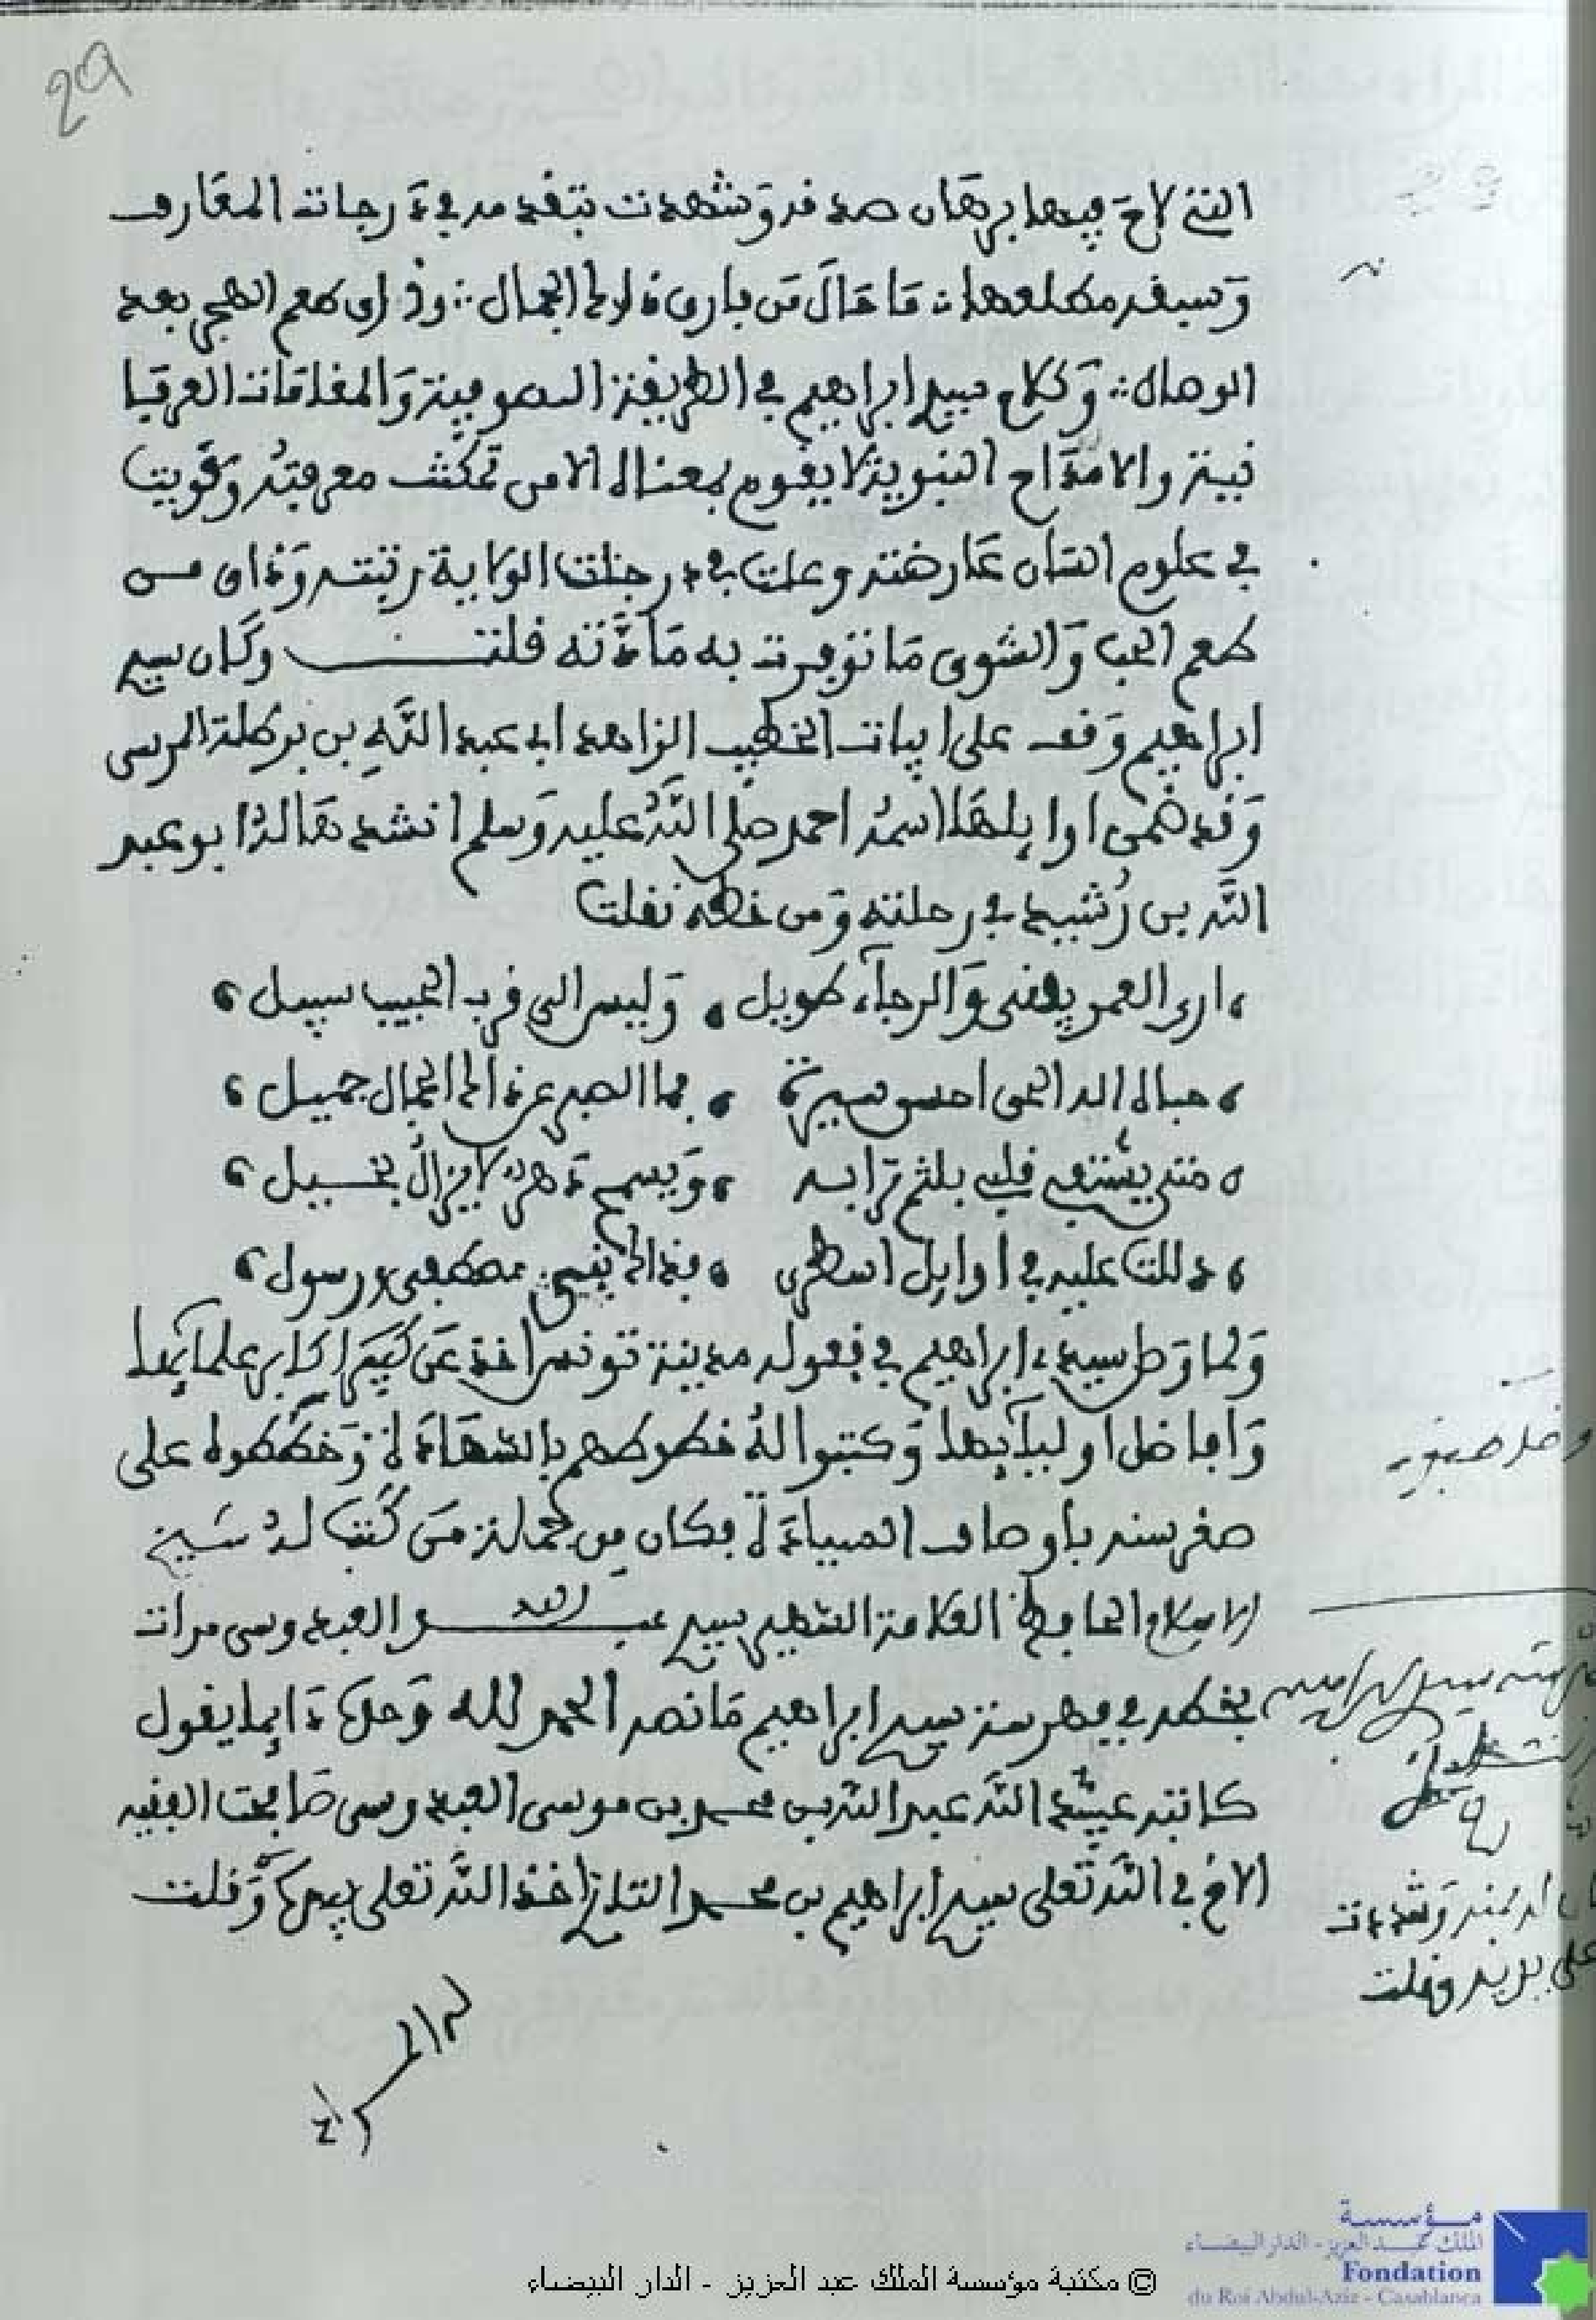 29
التي لاح فيها برهان صدقه وشهدت بتقدمه في درجات المعارف
وسبقه مطلعها: ما حال من فارق ذاك الجمال: وذاق طعم الهجر بعد
الوصال: وكلام سيدي ابراهيم في الطريقة الصوفية والمقامات العرفا
نية والامداح النبوية لا يقوم بمعناه الا من تمكنت معرفته وقويت
في علوم اللسان عارضته وعلت في درجات الولاية رتبته وذاق من
طعم الحب والشوق ما توفرت به مادته قلت وكان سيدي
ابراهيم وقف على ابيات الخطيب الزاهد ابي عبد الله بن برطلة المرسي
وقد ضمن اوايلها اسمه احمد صلى الله عليه وسلم انشدها له ابو عبد
الله بن رشيد في رحلته ومن خطه نقلت
، ارى العمر يفنى والرجاء طويل ، وليس الى قرب الحبيب سبيل ،
، حباه اله الحق احسن سيرة ، فما الصبر عن ذاك الجمال جميل ،
، متى يشتفي قلبي بلثم ترابه ، ويسمح دهر لا يزال بخيل ،
، دللت عليه في اوايل اسطري ، فذاك نبي مصطفى ورسول ،
ولما وصل سيدي ابراهيم في قفوله مدينة تونس اخذ عن كثير اكابر علمايها
وافاضل اوليايها وكتبوا له خطوطهم بالشهادة له وخططوه على
صغر سنه باوصاف السيادة فكان من جملة من كتب له شيخ
الاسلام الحافظ العلامة الشهير سيدي عبد الله العبدوسي مرات
بخطه في فهرسة سيدي ابراهيم ما نصه الحمد لله وحده دايما يقول
كاتبه عبيد الله عبد الله بن محمد بن موسى العبدوسي صافحت الفقيه
الاخ في الله تعلى سيدي ابراهيم بن محمد التازي اخذ الله تعلى بيده وقلت
وقلت
© مكتبة مؤسسة الملك عبد العزيز - الدار البيضاء
مؤسسة
الملك عبد العزيز - الدار البيضاء
Fondation
du Roi Abdul-Aziz - Casablanca